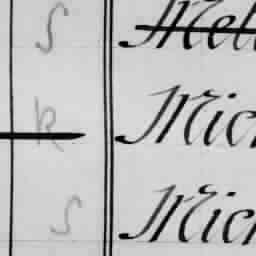 S Mel
R Mich
S Mich